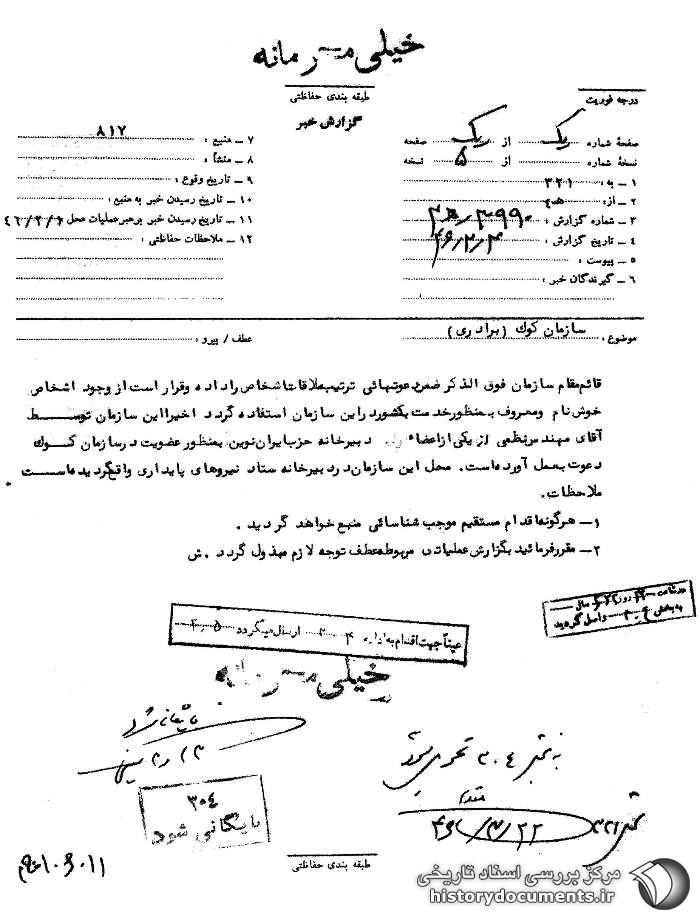 خیلی محرمانه
طبقه بندی حفاظتی
گزارش خبر
درجه فوریت
صفحهٔ شماره یک از یک صفحه
نسخهٔ شماره از ۵ نسخه
۱ ــ به : ۳۲۱
۲ ــ از :
۳ ــ شماره گزارش :
۴ ــ تاریخ گزارش : ۴۶/۲/۴
۵ ــ پیوست :
۶ ــ گیرندگان خبر :
۷ ــ منبع : ۸۱۲
۸ ــ منشأ :
۹ ــ تاریخ وقوع :
۱۰ ــ تاریخ رسیدن خبر به منبع :
۱۱ ــ تاریخ رسیدن خبر برهبر عملیات محل
۱۲ ــ ملاحظات حفاظتی :
موضوع : سازمان کوک (برادری)
عطف / پیرو :
قائم مقام سازمان فوق الذکر ضمن دعوتهائی ترتیب ملاقات اشخاص را داده و قرار است از وجود اشخاص
خوش نام و معروف بمنظور خدمت بکشور در این سازمان استفاده گردد اخیرا این سازمان توسط
آقای مهندس نظمی از یکی از اعضاء دبیرخانه حزب ایران نوین بمنظور عضویت در سازمان کوک
دعوت بعمل آورده است. محل این سازمان در دبیرخانه ستاد نیروهای پایداری واقع گردیده است
ملاحظات.
۱ــ هرگونه اقدام مستقیم موجب شناسائی منبع خواهد گردید .
۲ــ مقرر فرمائید بگزارش عملیات مربوطه عطف توجه لازم مبذول گردد. ش
واصل گردید
عیناً جهت اقدام به اداره ارسال میگردد
خیلی محرمانه
بایگانی شود
به بخش ۳۰۴ تحویل شود
۳۰۴
بایگانی شود
۴۶/۳/۲۲
طبقه بندی حفاظتی
مرکز بررسی اسناد تاریخی
historydocuments.ir